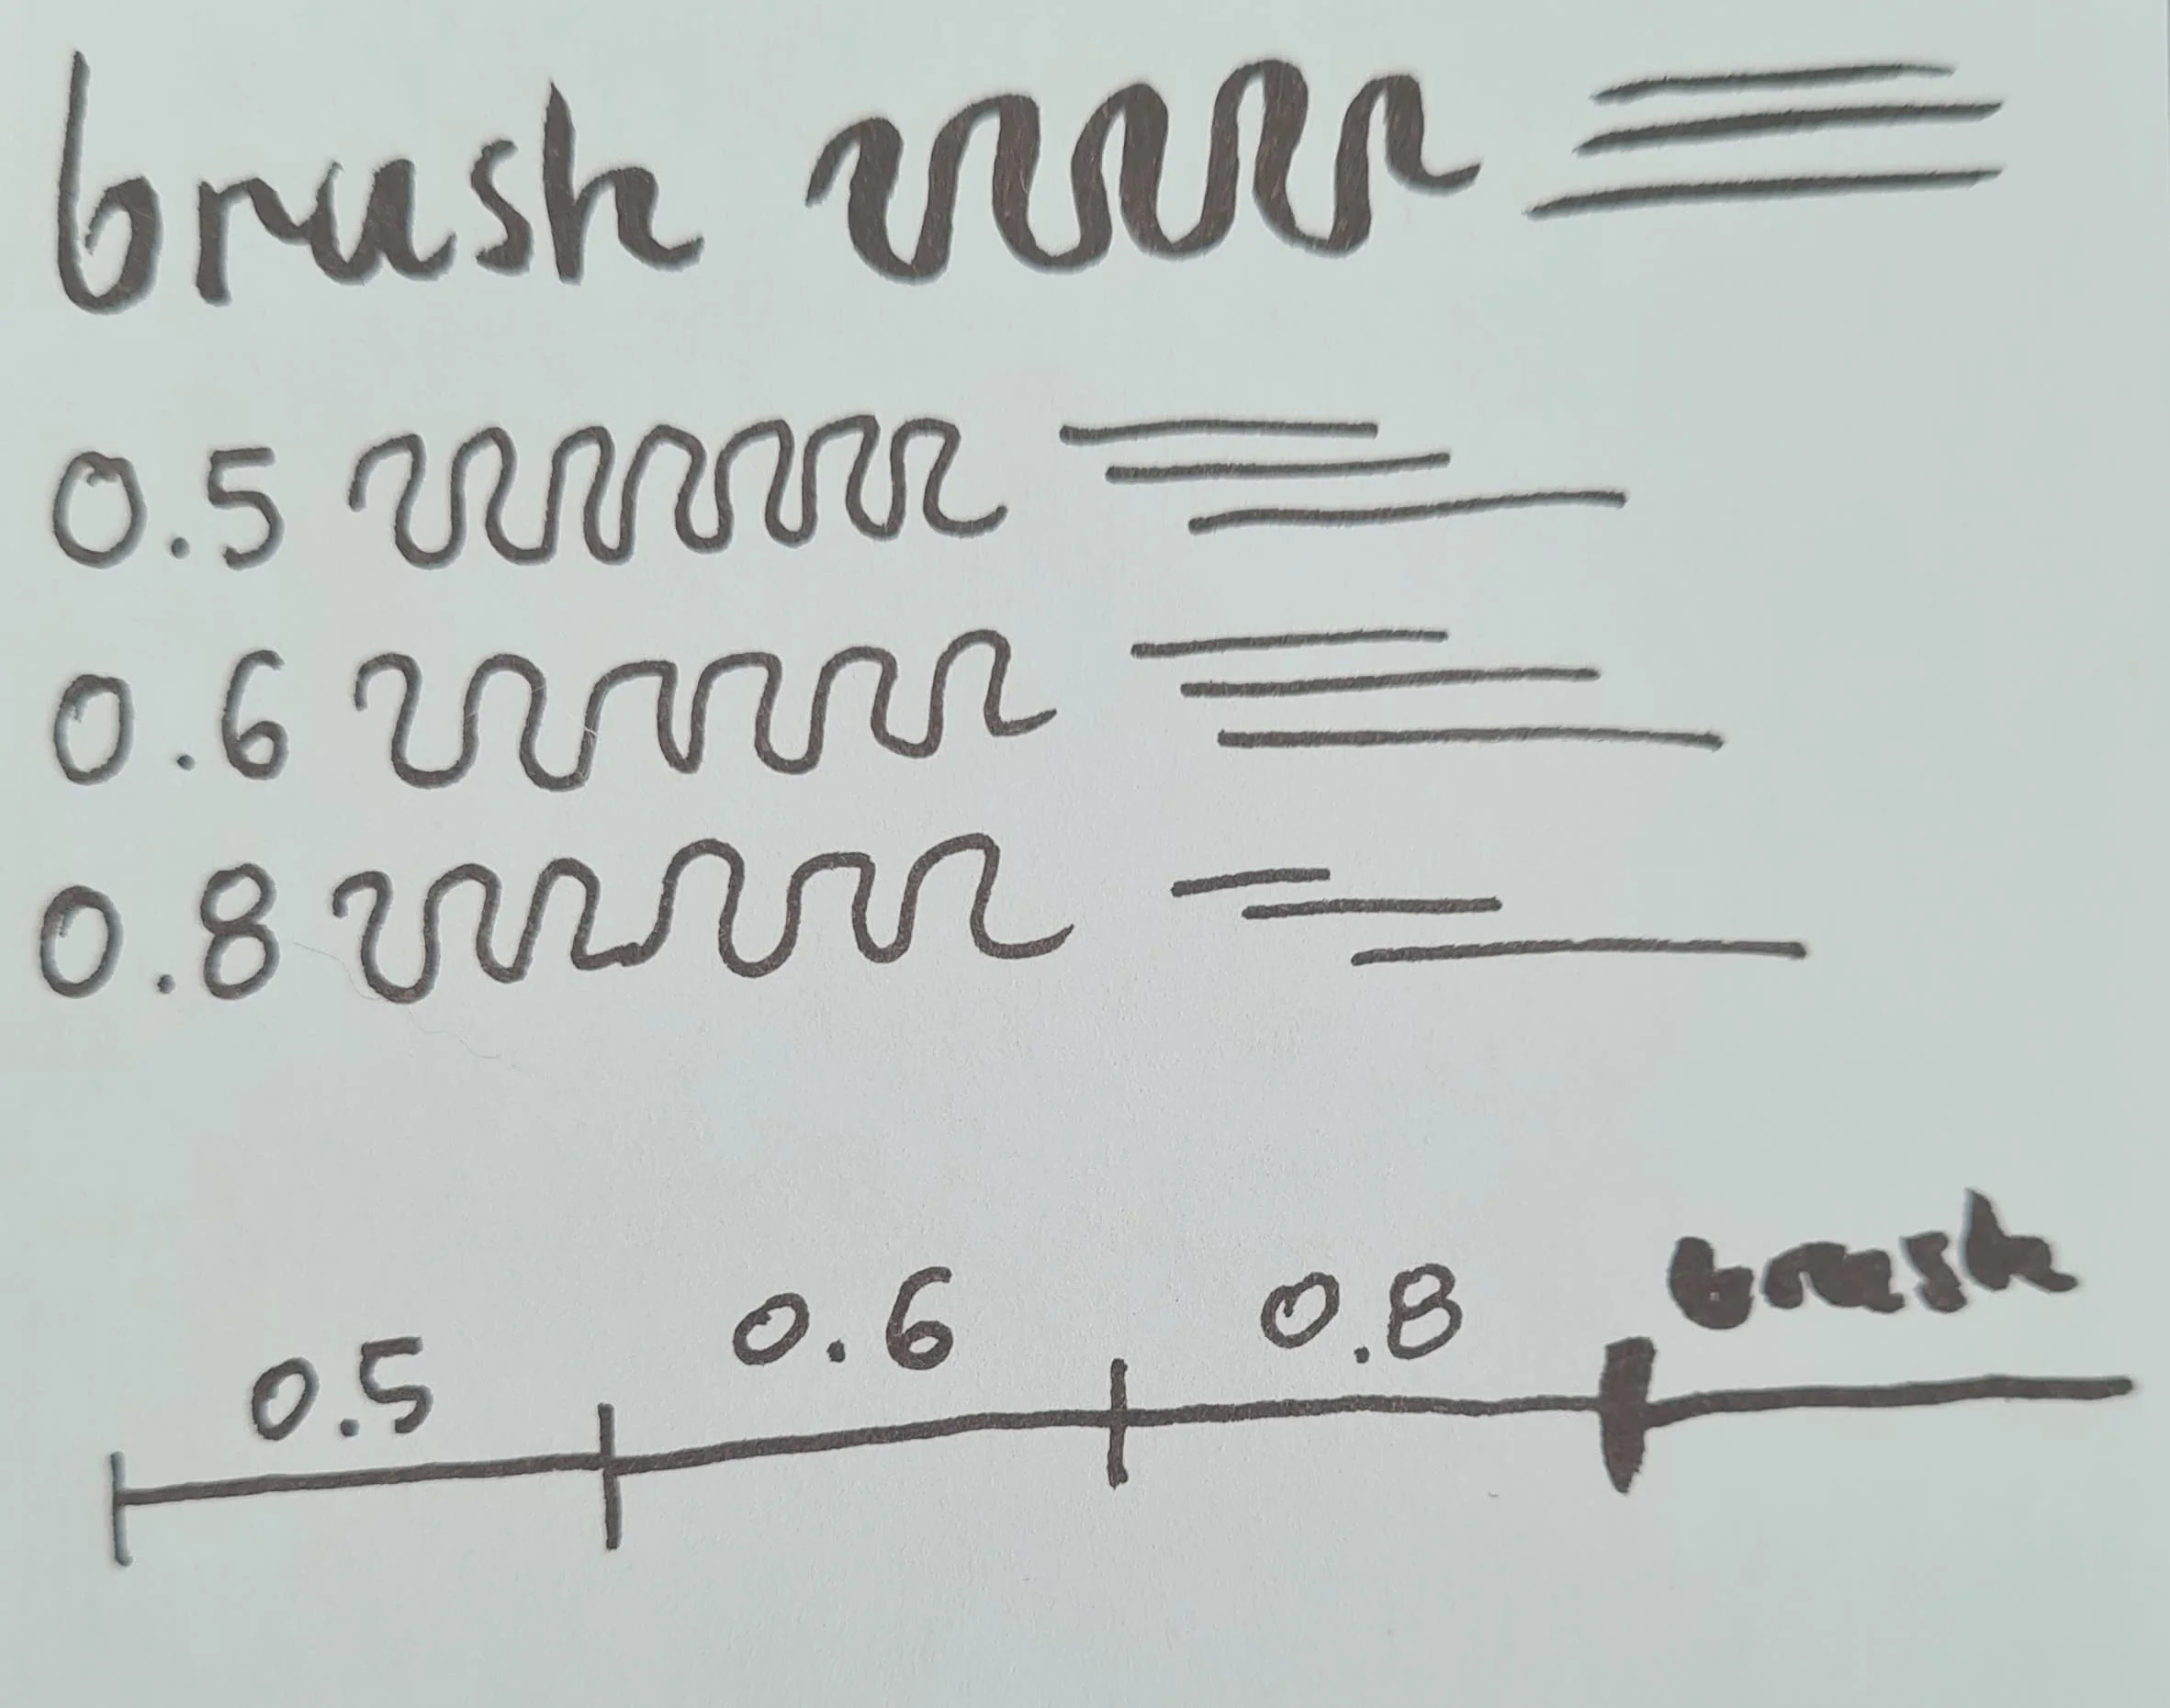 brush
0.5
0.6
0.8
0.5 0.6 0.8 brush